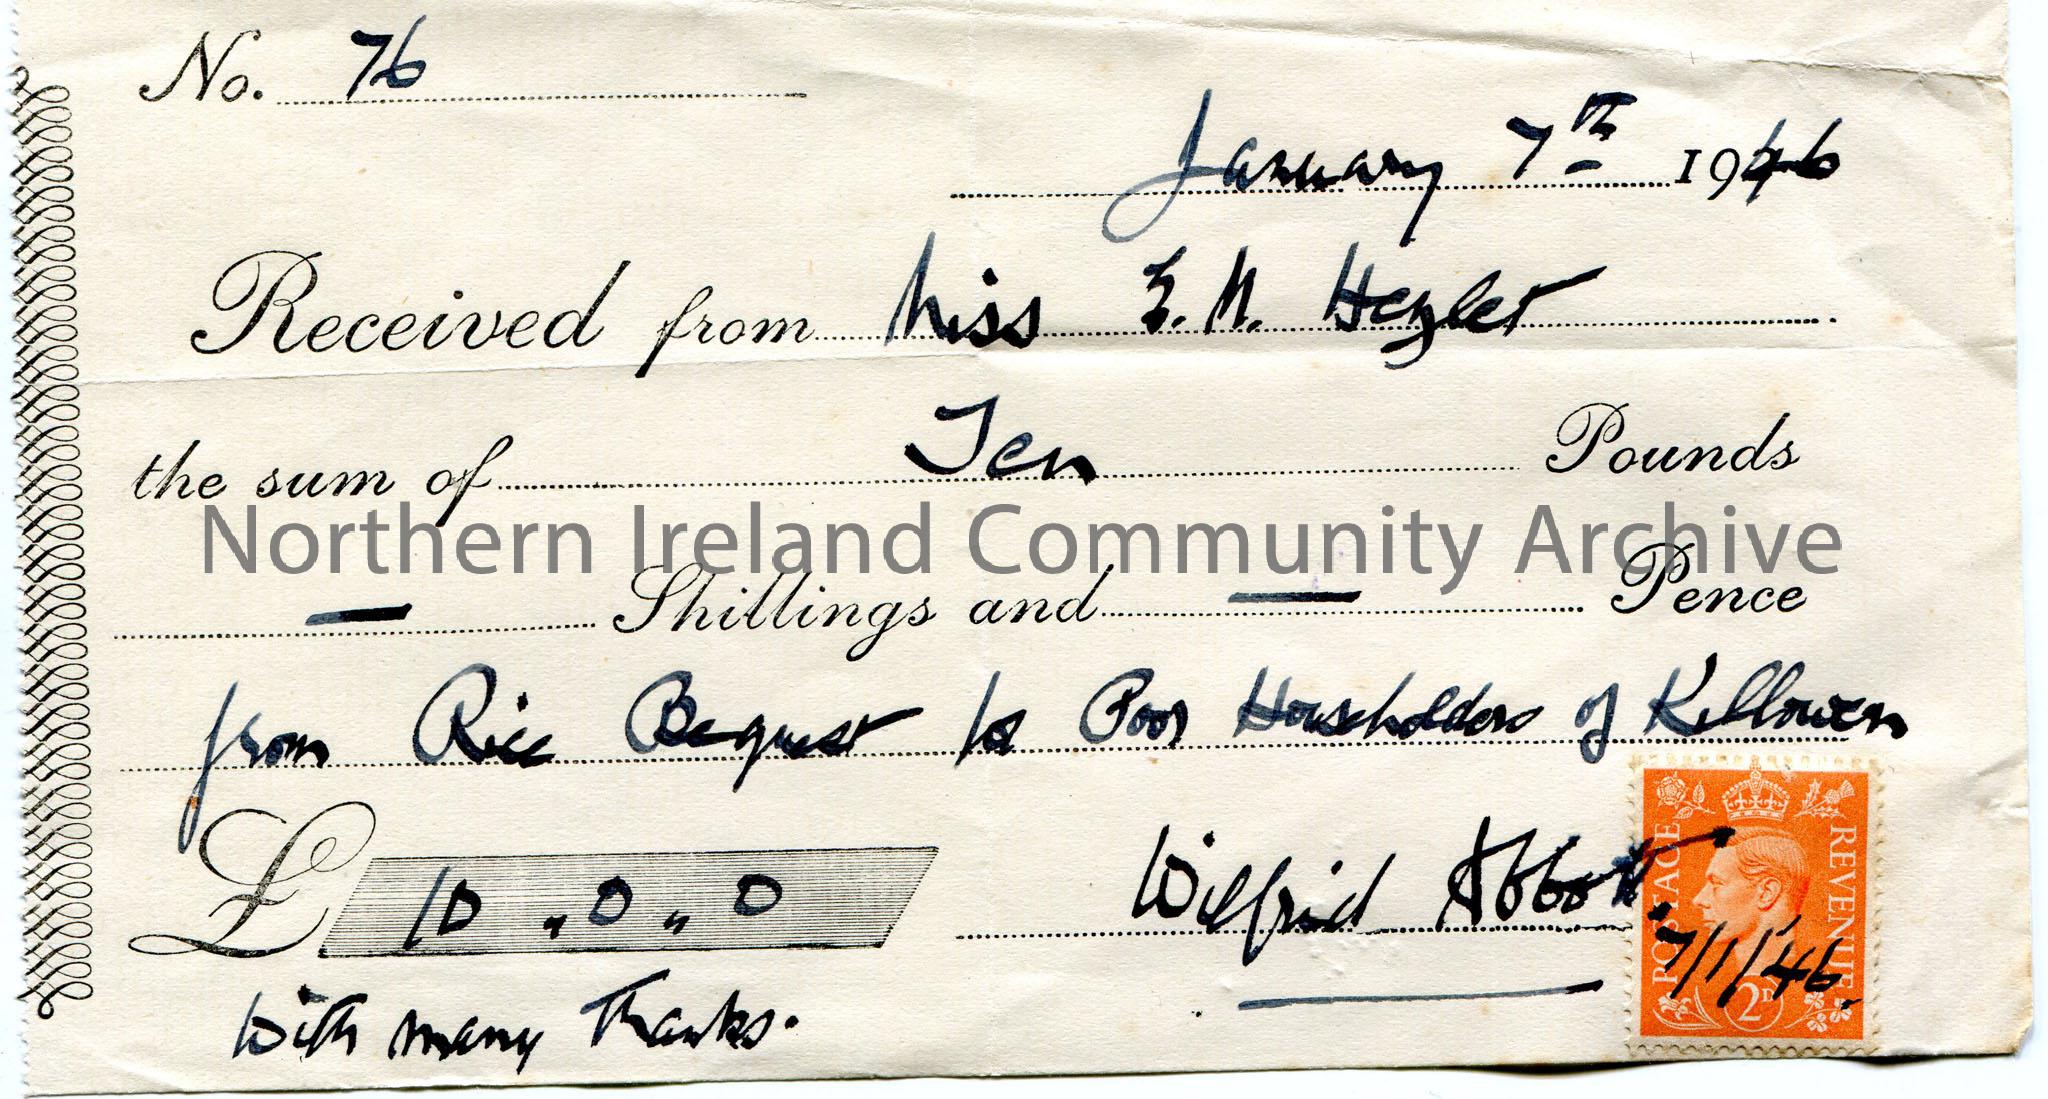 No. 76
January 7th 1946
Received from Miss E. M. Hezlet
the sum of Ten Pounds
Northern Ireland Community Archive
— Shillings and — Pence
from Rice Bequest to Poor Householders of Killowen
£ 10 . 0 . 0
Wilfrid Abbott
POSTAGE REVENUE
7/1/46.
2D
With many Thanks.